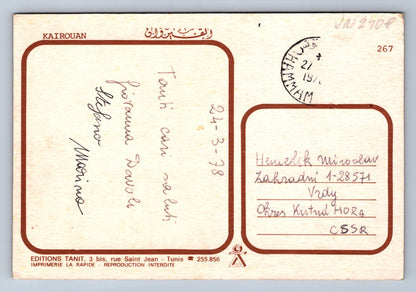 VAI2408
KAIROUAN
القيروان
267
HAMMAM
24-3-78
Tanti cari saluti
Giovanna Davoli
Stefano
Marina
Henčlík Miroslav
Zahradní 1-28571
Vrdy
Okres Kutná HORA
ČSSR
EDITIONS TANIT, 3 bis, rue Saint Jean - Tunis ☎ 255.856
IMPRIMERIE LA RAPIDE - REPRODUCTION INTERDITE